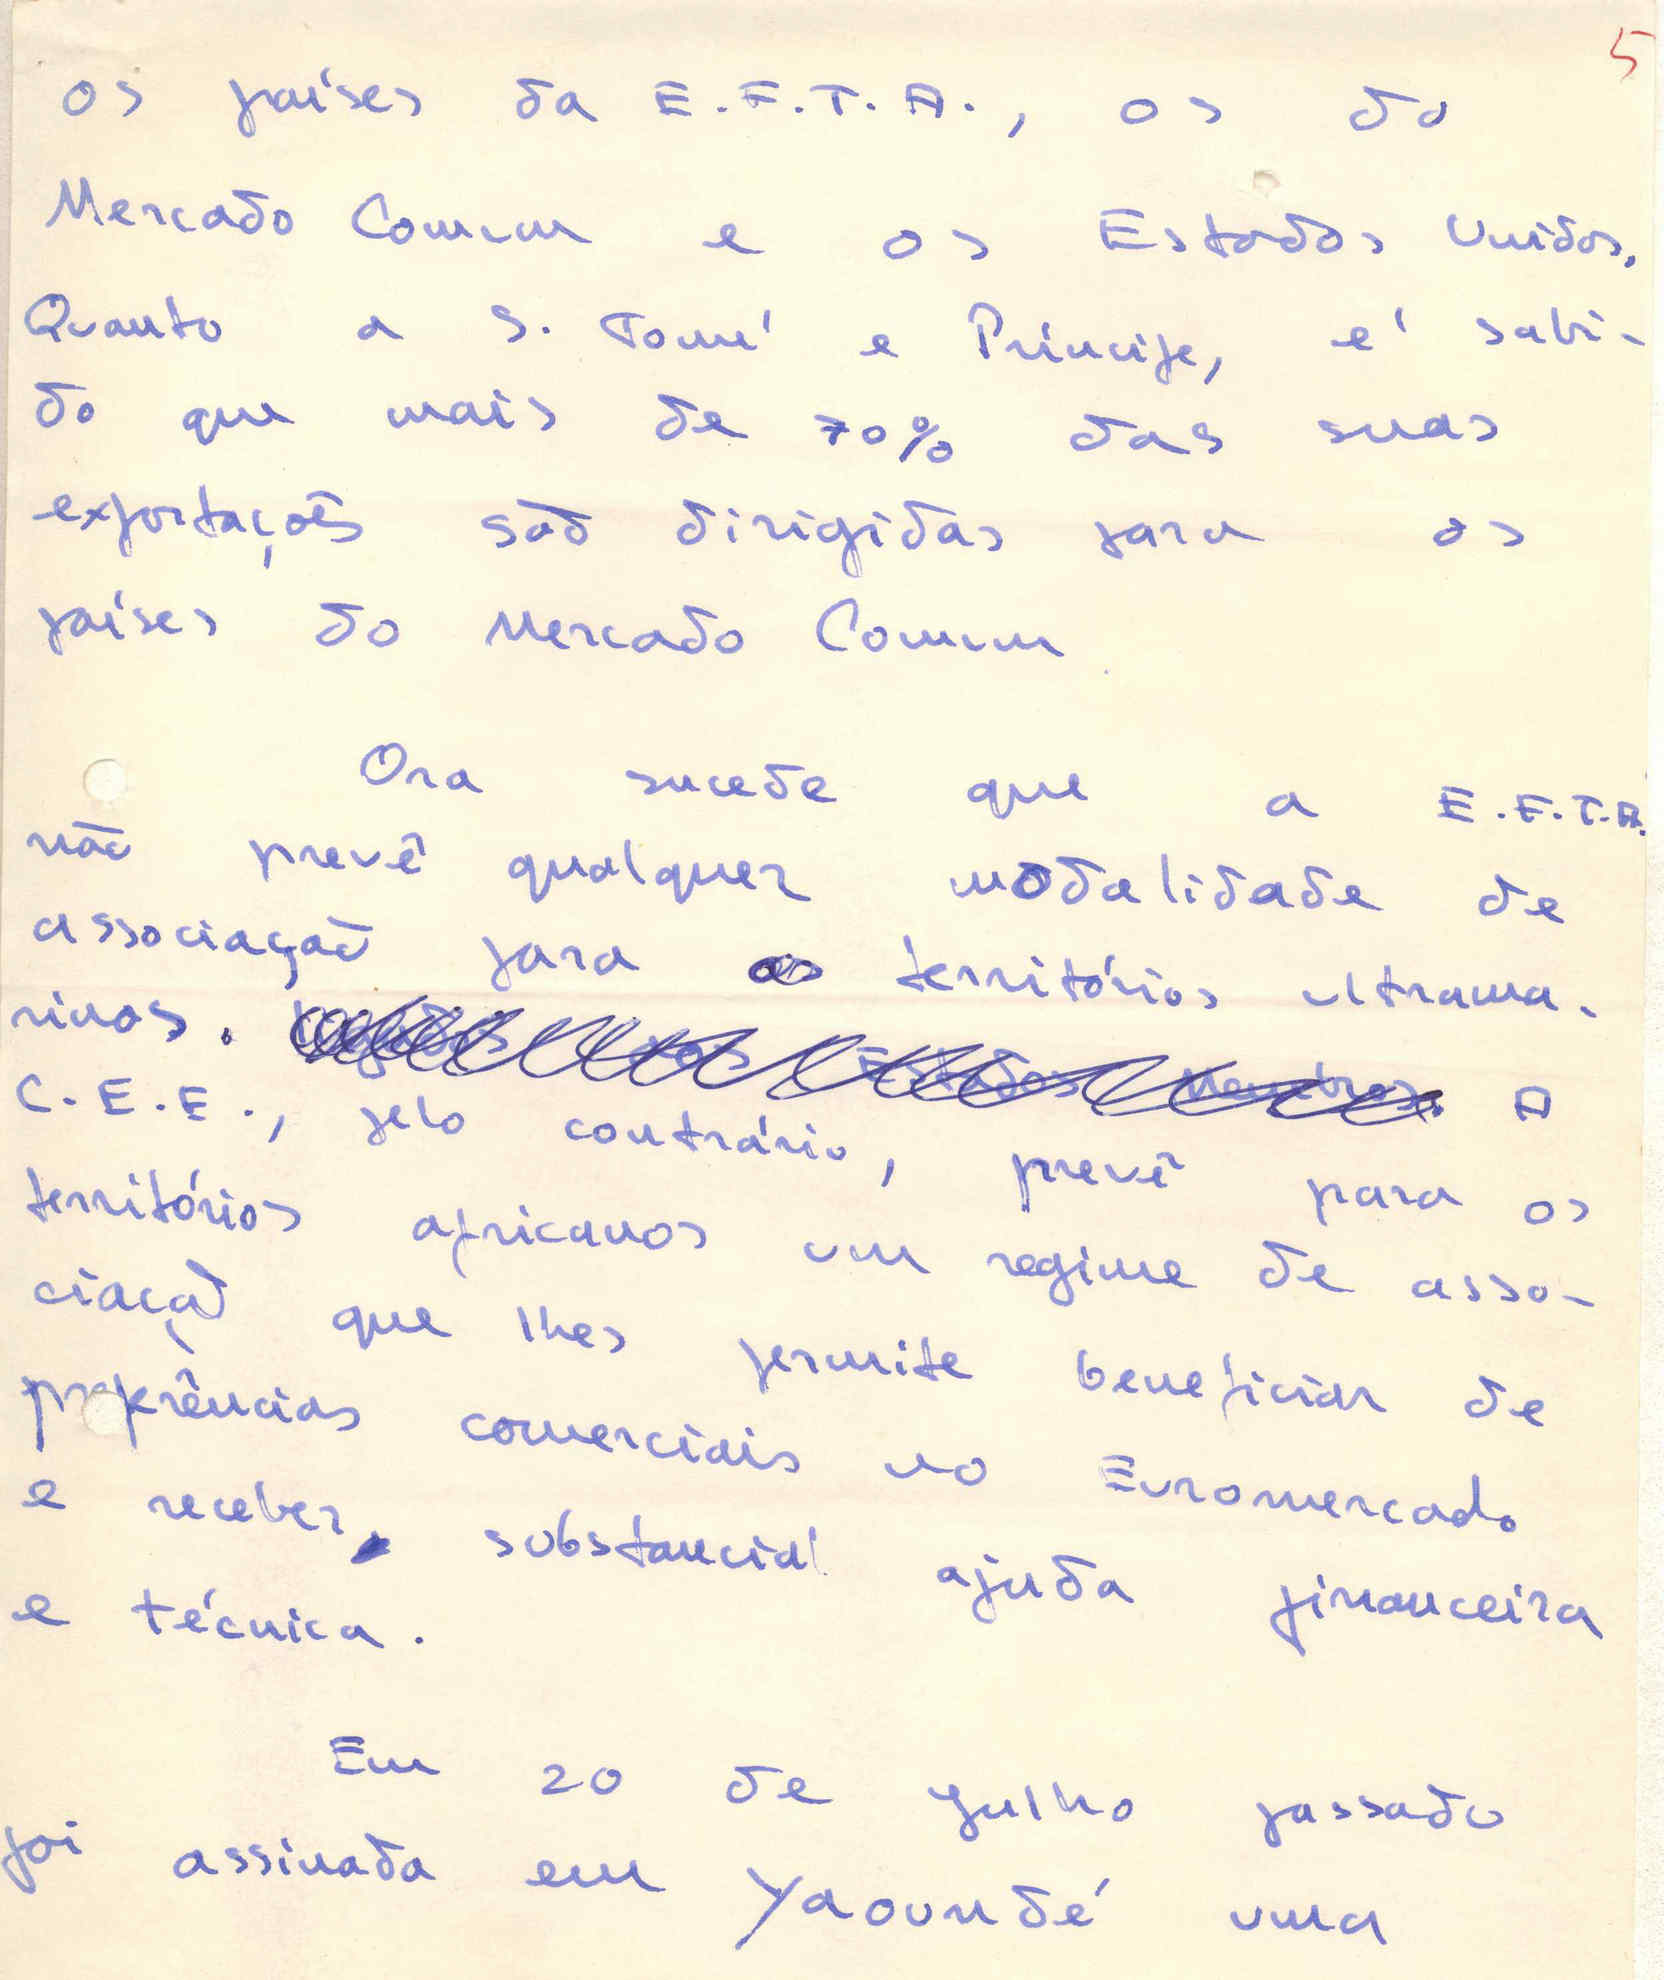 5
os países da E.F.T.A., os do
Mercado Comum e os Estados Unidos.
Quanto a S. Tomé e Príncipe, é sabi-
do que mais de 70% das suas
exportações são dirigidas para os
países do Mercado Comum.
Ora sucede que a E.F.T.A.
não prevê qualquer modalidade de
associação para os territórios ultrama-
rinos. dos Estados Membros. A
C.E.E., pelo contrário, prevê para os
territórios africanos um regime de asso-
ciação que lhes permite beneficiar de
preferências comerciais no Euromercado
e receber substancial ajuda financeira
e técnica.
Em 20 de Julho passado
foi assinada em Yaoundé uma